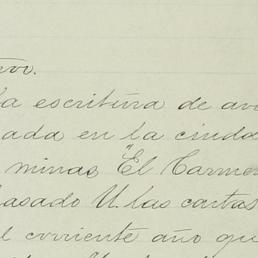 la escritura de
ada en la ciuda
minas "El Carme
pasado U. las cartas
l corriente año que